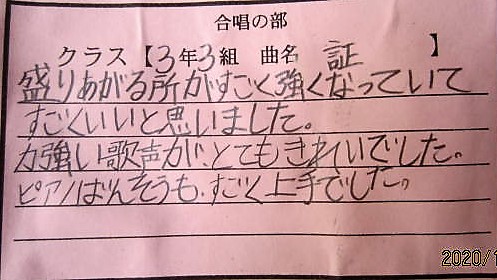 合唱の部
クラス【3年3組 曲名 証 】
盛りあがる所がすごく強くなっていて
すごくいいと思いました。
力強い歌声が、とてもきれいでした。
ピアノばんそうも、すごく上手でした。